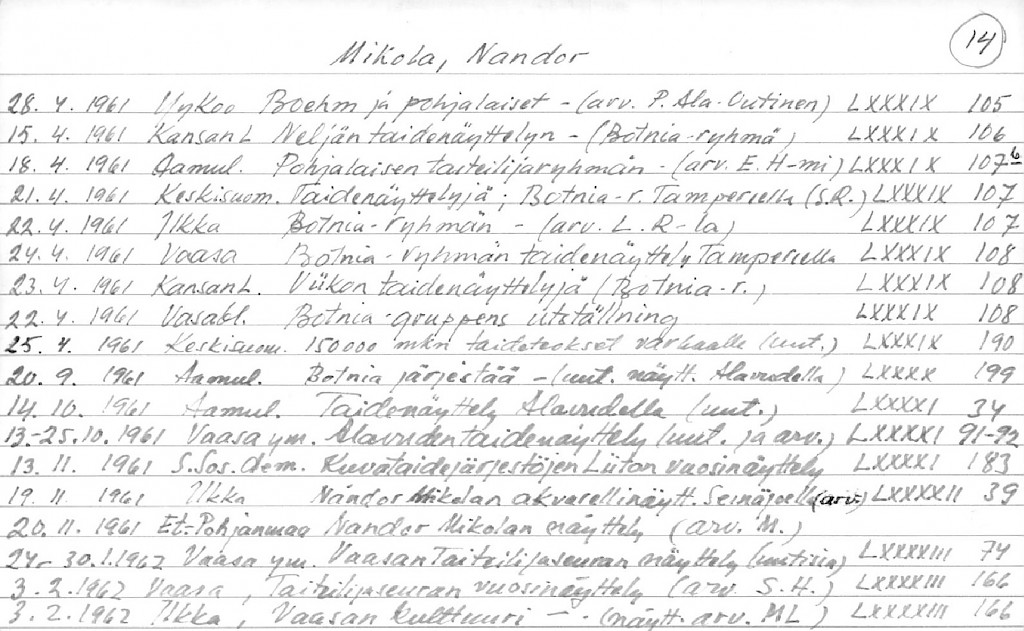 14
Mikola, Nandor
28. 4. 1961 UyKoo Boehm ja pohjalaiset - (arv. P. Ala-Outinen) LXXXIX 105
15. 4. 1961 KansanL Neljän taidenäyttelyn - (Botnia-ryhmä) LXXXIX 106
18. 4. 1961 Aamul. Pohjalaisen taiteilijaryhmän - (arv. E. H-mi) LXXXIX 107 b
21. 4. 1961 Keskisuom. Taidenäyttelyjä; Botnia-r. Tampereella (S.R.) LXXXIX 107
22. 4. 1961 Ilkka Botnia-ryhmän - (arv. L. R-la) LXXXIX 107
24. 4. 1961 Vaasa Botnia-ryhmän taidenäyttely Tampereella LXXXIX 108
23. 4. 1961 KansanL. Viikon taidenäyttelyjä (Botnia-r.) LXXXIX 108
22. 4. 1961 Vasabl. Botnia-gruppens utställning LXXXIX 108
25. 4. 1961 Keskisuom. 150000 mkn taideteokset varkaalle (uut.) LXXXIX 190
20. 9. 1961 Aamul. Botnia järjestää - (uut. näytt. Alavudella) LXXXX 199
14. 10. 1961 Aamul. Taidenäyttely Alavudella (uut.) LXXXXI 34
13.-25.10. 1961 Vaasa ym. Alavuden taidenäyttely (uut. ja arv.) LXXXXI 91-92
13. 11. 1961 S.Sos.dem. Kuvataidejärjestöjen Liiton vuosinäyttely LXXXXI 183
19. 11. 1961 Ilkka Nándor Mikolan akvarellinäytt. Seinäjoella (arv.) LXXXXII 39
20. 11. 1961 Et.-Pohjanmaa Nandor Mikolan näyttely (arv. M.)
24.- 30.1.1962 Vaasa ym. Vaasan Taiteilijaseuran näyttely (uutisia) LXXXXIII 74
3. 2. 1962 Vaasa, Taiteilijaseuran vuosinäyttely (arv. S.H.) LXXXXIII 166
3. 2. 1962 Ilkka, Vaasan Kulttuuri - - (näytt. arv. ML) LXXXXIII 166